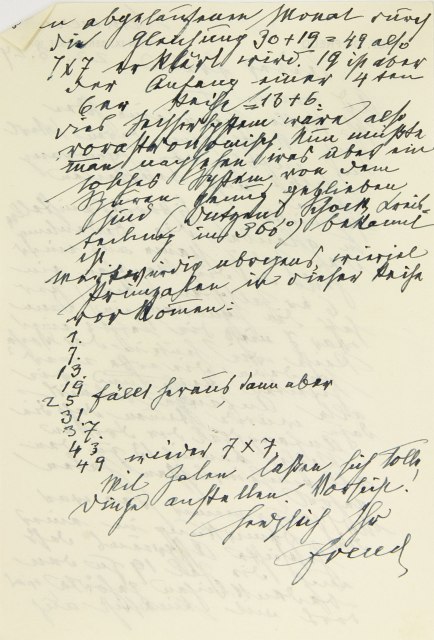 abgelaufenen Monat durch
die Gleichung 30+19=49 also
7x7 erklärt wird. 19 ist aber
der Anfang einer 4ten
6er Reihe =13+6.
dies Sechsersystem wäre also
vorastronomisch. Nun müßte
man nachsehen was über ein
solches System von dem
Spuren genug geblieben
sind (Dutzend, Schock, Kreis-
teilung in 360°) bekannt
ist.
Merkwürdig übrigens, wieviel
Primzalen in dieser Reihe
vorkommen:
1.
7.
13.
19
25 fällt heraus, dann aber
31.
37.
43
49 wieder 7x7
Mit Zalen laßen sich tolle
Dinge anstellen. Vorsicht!
Herzlich Ihr
Freud